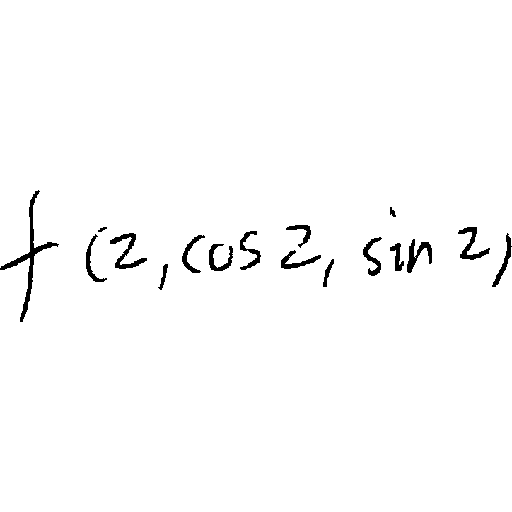 f(z, cos z, sin z)